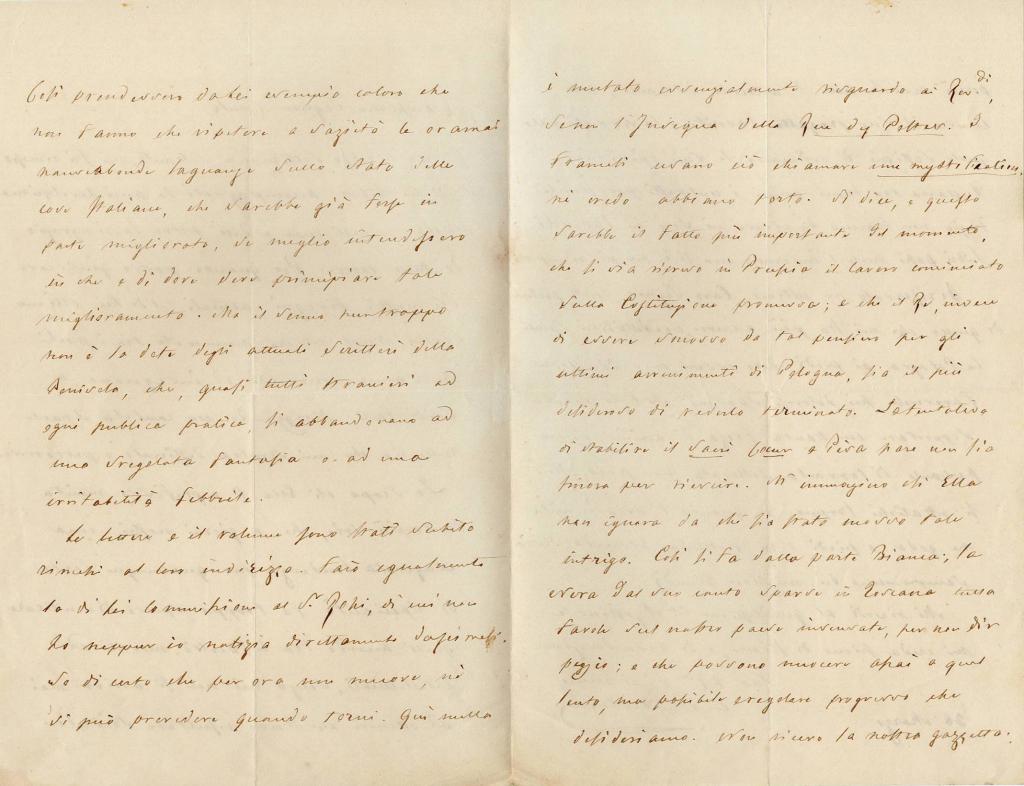 Così prendessero da Lei esempio coloro che
non fanno che ripetere a sazietà le oramai
nauseabonde lagnanze sullo stato delle
cose Italiane, che sarebbe già forse in
parte migliorato, se meglio intendessero
in che e di dove deve principiare tale
miglioramento. Ma il senno purtroppo
non è la dote degli attuali scrittori della
Penisola, che, quasi tutti stranieri ad
ogni publica pratica, si abbandonano ad
una sregolata fantasia o ad una
irritabilità febbrile.
Le lettere e il volume sono stati subito
rimessi al loro indirizzo. Farò egualmente
la di Lei commissione al Sr. Zobi, di cui non
ho neppur io notizia direttamente da più mesi.
So di certo che per ora non muove, nè
si può prevedere quando torni. Quì nulla
è mutato essenzialmente risguardo ai
se non l'Insegna della Rue des Postes. I
Francesi usano ciò chiamare une mystification,
nè credo abbiano torto. Si dice, e questo
sarebbe il fatto più importante del momento,
che si sia ripreso in Prussia il lavoro cominciato
sulla Costituzione promessa; e che il Re, invece
di essere smosso da tal pensiero per gli
ultimi avvenimenti di Pologna, sia il più
desideroso di vederlo terminato. Il tentativo
di stabilire il Sacré Cœur a Pisa pare non sia
finora per riescire. M'immagino che Ella
non ignora da chi sia stato mosso tale
intrigo. Così si fa dalla parte Bianca; la
Nera dal suo canto sparge in Toscana
sul nostro paese insensate, per non dir
peggio; e che possono nuocere assai a quel
lento, ma possibile e regolare progresso che
desideriamo. Non ricevo la nostra gazzetta.